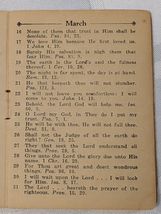 March
14 None of them that trust in Him shall be
desolate. Psa. 34, 22.
17 We love Him because He first loved us.
1 John 4, 19.
18 Surely His salvation is nigh them that
fear Him. Psa. 85, 9.
19 The earth is the Lord's and the fulness
thereof. 1 Cor. 10, 26.
20 The night is far spent, the day is at hand.
Rom. 13, 12.
21 He that keepeth thee will not slumber.
22 I will not leave you comfortless: I will
come to you. John 14, 18.
23 Behold, the Lord God will help me. Isa.
50, 9.
24 O Lord my God, in Thee do I put my
trust. Psa. 7, 1.
He will be with thee, He will not fail thee.
Shall not the Judge of all the earth do
right? Gen. 18, 25.
They that seek the Lord understand all
things.
Give unto the Lord the glory due unto His
name. 1 Chr. 16, 29.
For Thou art great and doest wondrous
things. Psa. 86, 10.
I will wait upon the Lord . . . I will look
for Him. Isa. 8, 17.
31 The Lord . . . heareth the prayer of the
righteous. Prov. 15, 29.